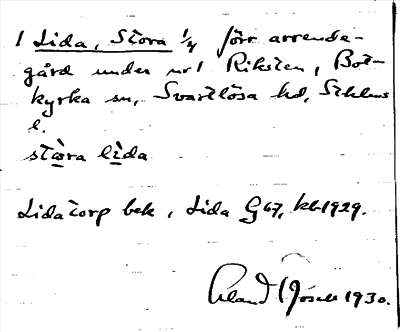 1 Lida, Stora 1/4 förr arrende-
gård under nr 1 Riksten, Bot-
kyrka sn, Svartlösa hd, Sthlms
l.
stωra lìda
Lidatorp bek, Lida G 67, kb 1929.
1930.